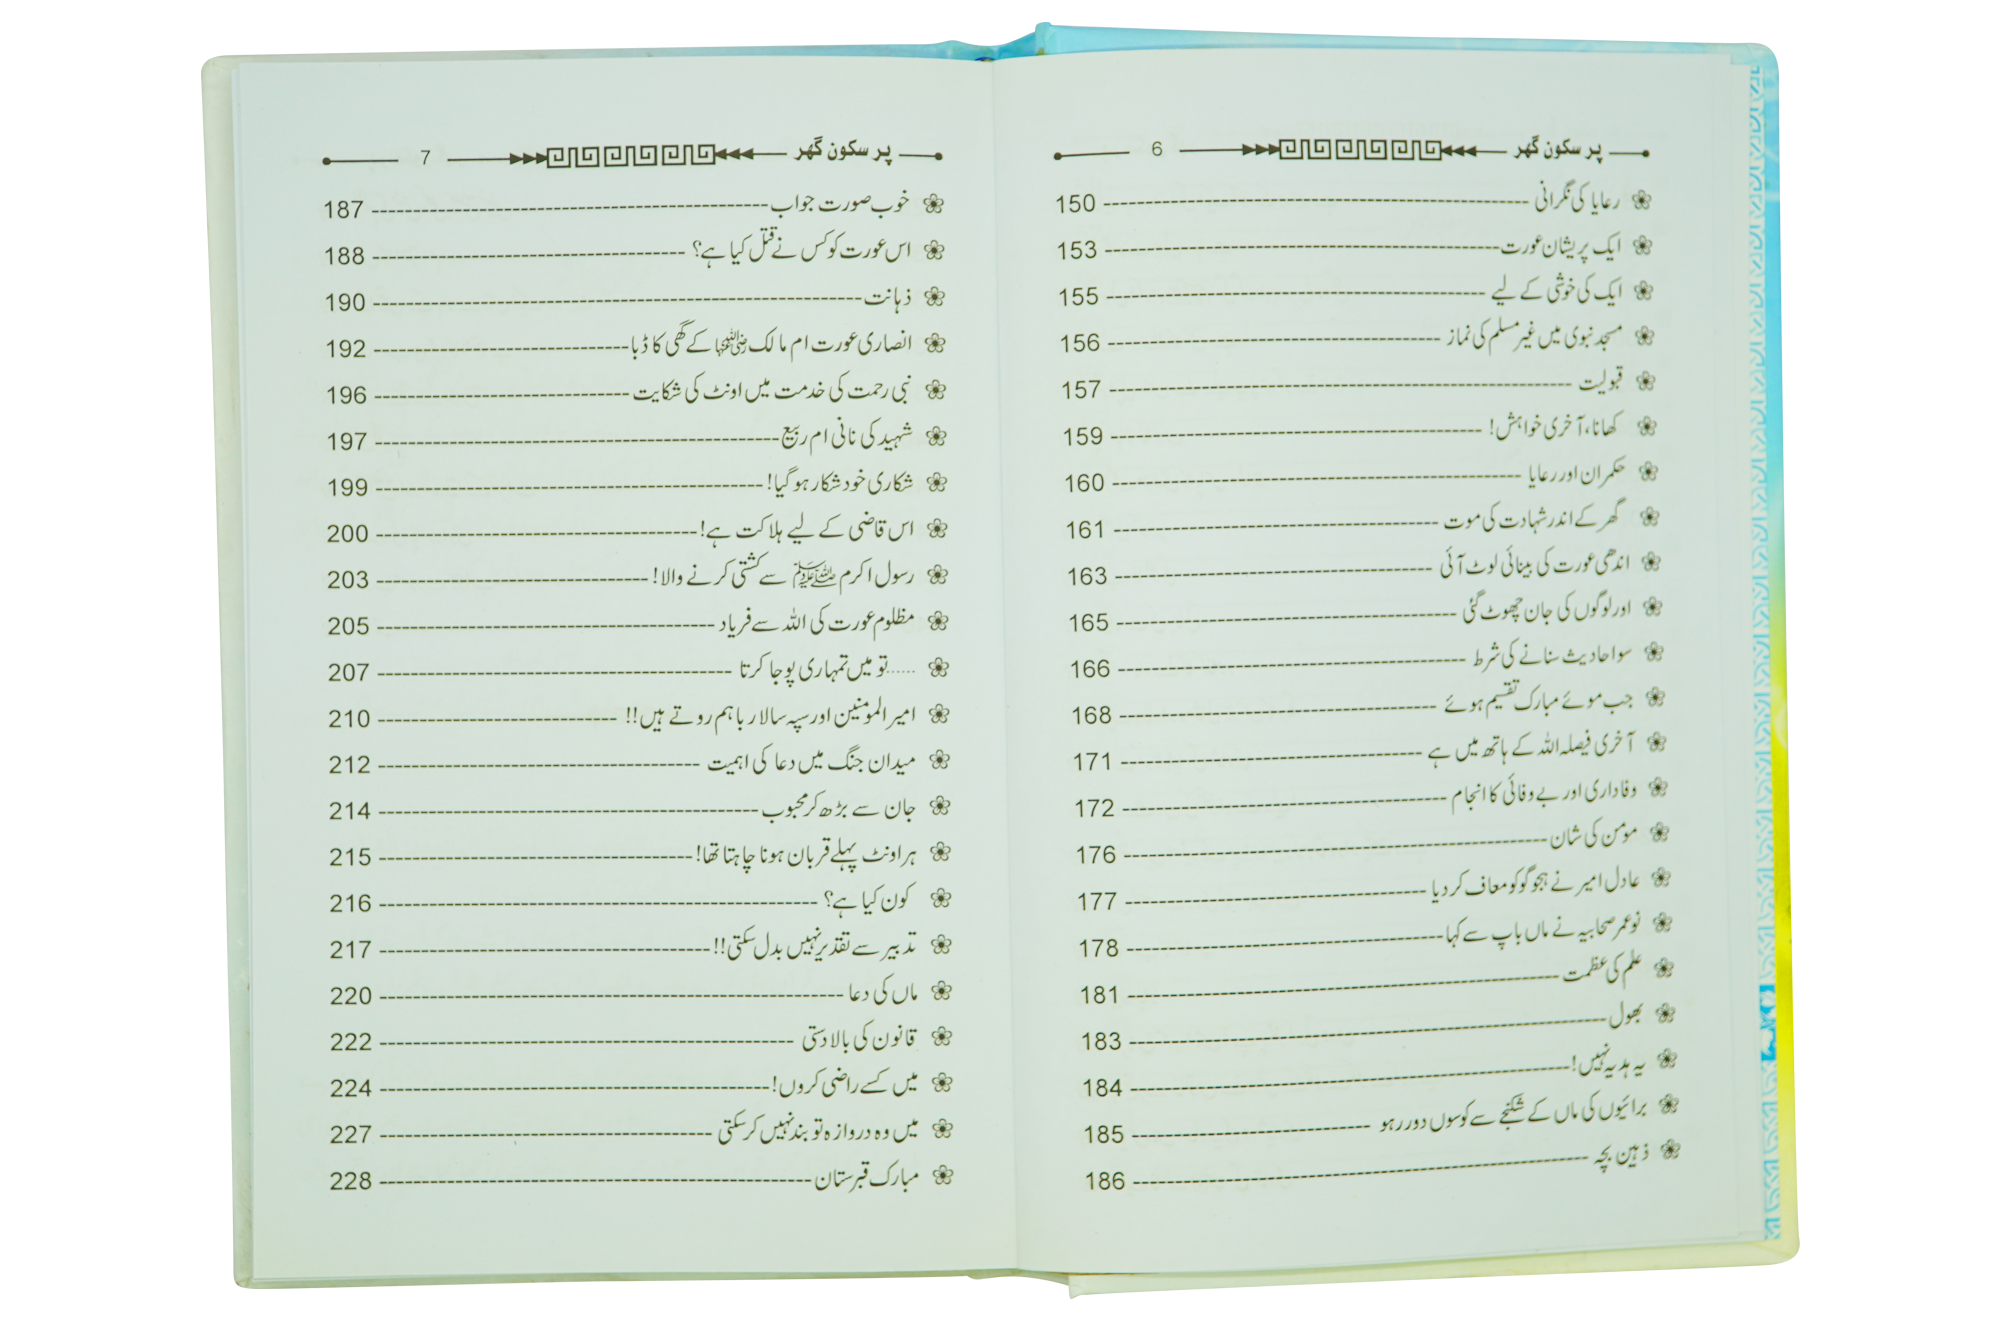 پر سکون گھر 6
رعایا کی نگرانی 150
ایک پریشان عورت 153
ایک کی خوشی کے لیے 155
مسجد نبوی میں غیر مسلم کی نماز 156
قبولیت 157
کھانا، آخری خواہش! 159
حکمران اور رعایا 160
گھر کے اندر شہادت کی موت 161
اندھی عورت کی بینائی لوٹ آئی 163
اور لوگوں کی جان چھوٹ گئی 165
سو احادیث سنانے کی شرط 166
جب موئے مبارک تقسیم ہوئے 168
آخری فیصلہ اللہ کے ہاتھ میں ہے 171
وفاداری اور بے وفائی کا انجام 172
مومن کی شان 176
عادل امیر نے ہجو گو کو معاف کر دیا 177
نو عمر صحابیہ نے ماں باپ سے کہا 178
علم کی عظمت 181
بھول 183
یہ ہدیہ نہیں! 184
برائیوں کی ماں کے شکنجے سے کوسوں دور رہو 185
ذہین بچہ 186
پر سکون گھر 7
خوب صورت جواب 187
اس عورت کو کس نے قتل کیا ہے؟ 188
ذہانت 190
انصاری عورت ام مالک رضی اللہ عنہا کے گھی کا ڈبا 192
نبی رحمت کی خدمت میں اونٹ کی شکایت 196
شہید کی نانی ام ربیع 197
شکاری خود شکار ہو گیا! 199
اس قاضی کے لیے ہلاکت ہے! 200
رسول اکرم ﷺ سے کشتی کرنے والا! 203
مظلوم عورت کی اللہ سے فریاد 205
......تو میں تمہاری پوجا کرتا 207
امیر المومنین اور سپہ سالار باہم روتے ہیں!! 210
میدان جنگ میں دعا کی اہمیت 212
جان سے بڑھ کر محبوب 214
ہر اونٹ پہلے قربان ہونا چاہتا تھا! 215
کون کیا ہے؟ 216
تدبیر سے تقدیر نہیں بدل سکتی!! 217
ماں کی دعا 220
قانون کی بالادستی 222
میں کسے راضی کروں! 224
میں وہ دروازہ تو بند نہیں کر سکتی 227
مبارک قبرستان 228